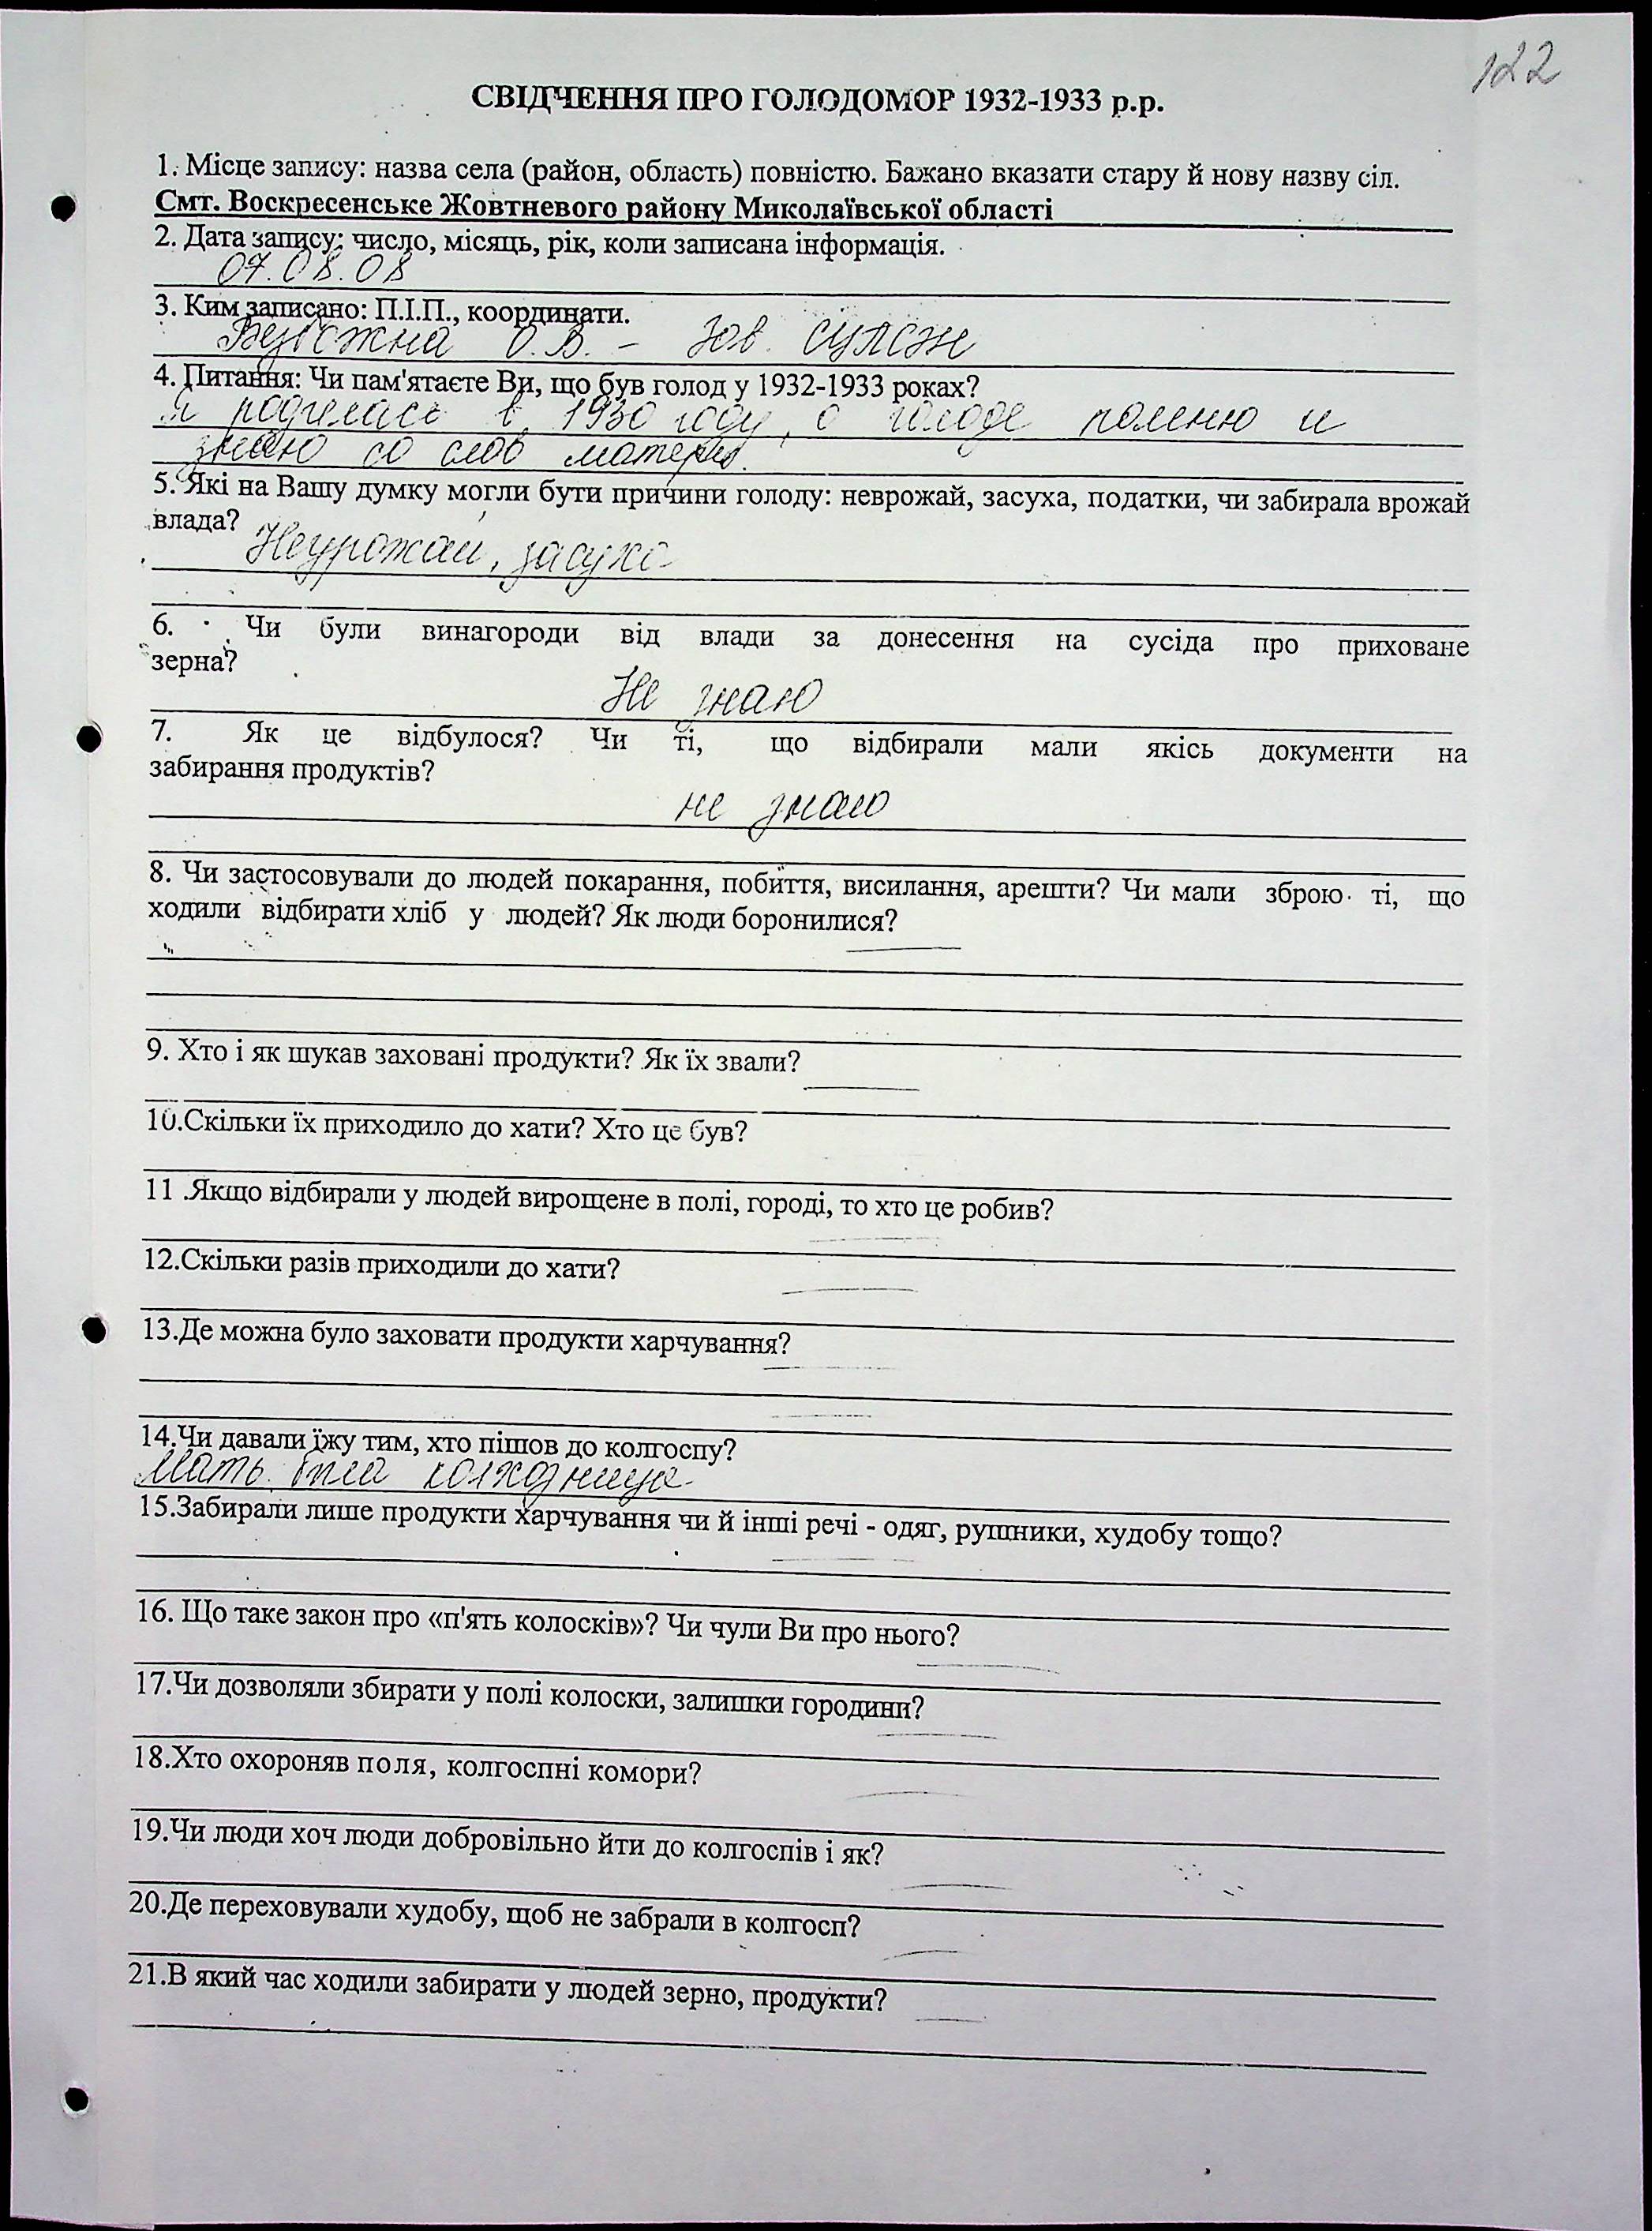 122
СВІДЧЕННЯ ПРО ГОЛОДОМОР 1932-1933 р.р.
1. Місце запису: назва села (район, область) повністю. Бажано вказати стару й нову назву сіл.
Смт. Воскресенське Жовтневого району Миколаївської області
2. Дата запису: число, місяць, рік, коли записана інформація.
07.08.08
3. Ким записано: П.І.П., координати.
О.В. - Зав.
4. Питання: Чи пам'ятаєте Ви, що був голод у 1932-1933 роках?
Я родилась в 1930 году, о голоде помню и
знаю со слов матери.
5. Які на Вашу думку могли бути причини голоду: неврожай, засуха, податки, чи забирала врожай
влада?
Неурожай, засуха
6. Чи були винагороди від влади за донесення на сусіда про приховане
зерна?
Не знаю
7. Як це відбулося? Чи ті, що відбирали мали якісь документи на
забирання продуктів?
не знаю
8. Чи застосовували до людей покарання, побиття, висилання, арешти? Чи мали зброю ті, що
ходили відбирати хліб у людей? Як люди боронилися?
9. Хто і як шукав заховані продукти? Як їх звали?
10.Скільки їх приходило до хати? Хто це був?
11 .Якщо відбирали у людей вирощене в полі, городі, то хто це робив?
12.Скільки разів приходили до хати?
13.Де можна було заховати продукти харчування?
14.Чи давали їжу тим, хто пішов до колгоспу?
Мать была колхозница
15.Забирали лише продукти харчування чи й інші речі - одяг, рушники, худобу тощо?
16. Що таке закон про «п'ять колосків»? Чи чули Ви про нього?
17.Чи дозволяли збирати у полі колоски, залишки городини?
18.Хто охороняв поля, колгоспні комори?
19.Чи люди хоч люди добровільно йти до колгоспів і як?
20.Де переховували худобу, щоб не забрали в колгосп?
21.В який час ходили забирати у людей зерно, продукти?